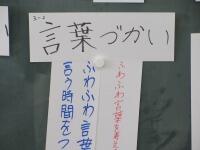 3-2
言葉づかい
ふわふわ言葉を考え
ふわふわ言葉
言う時間をつ